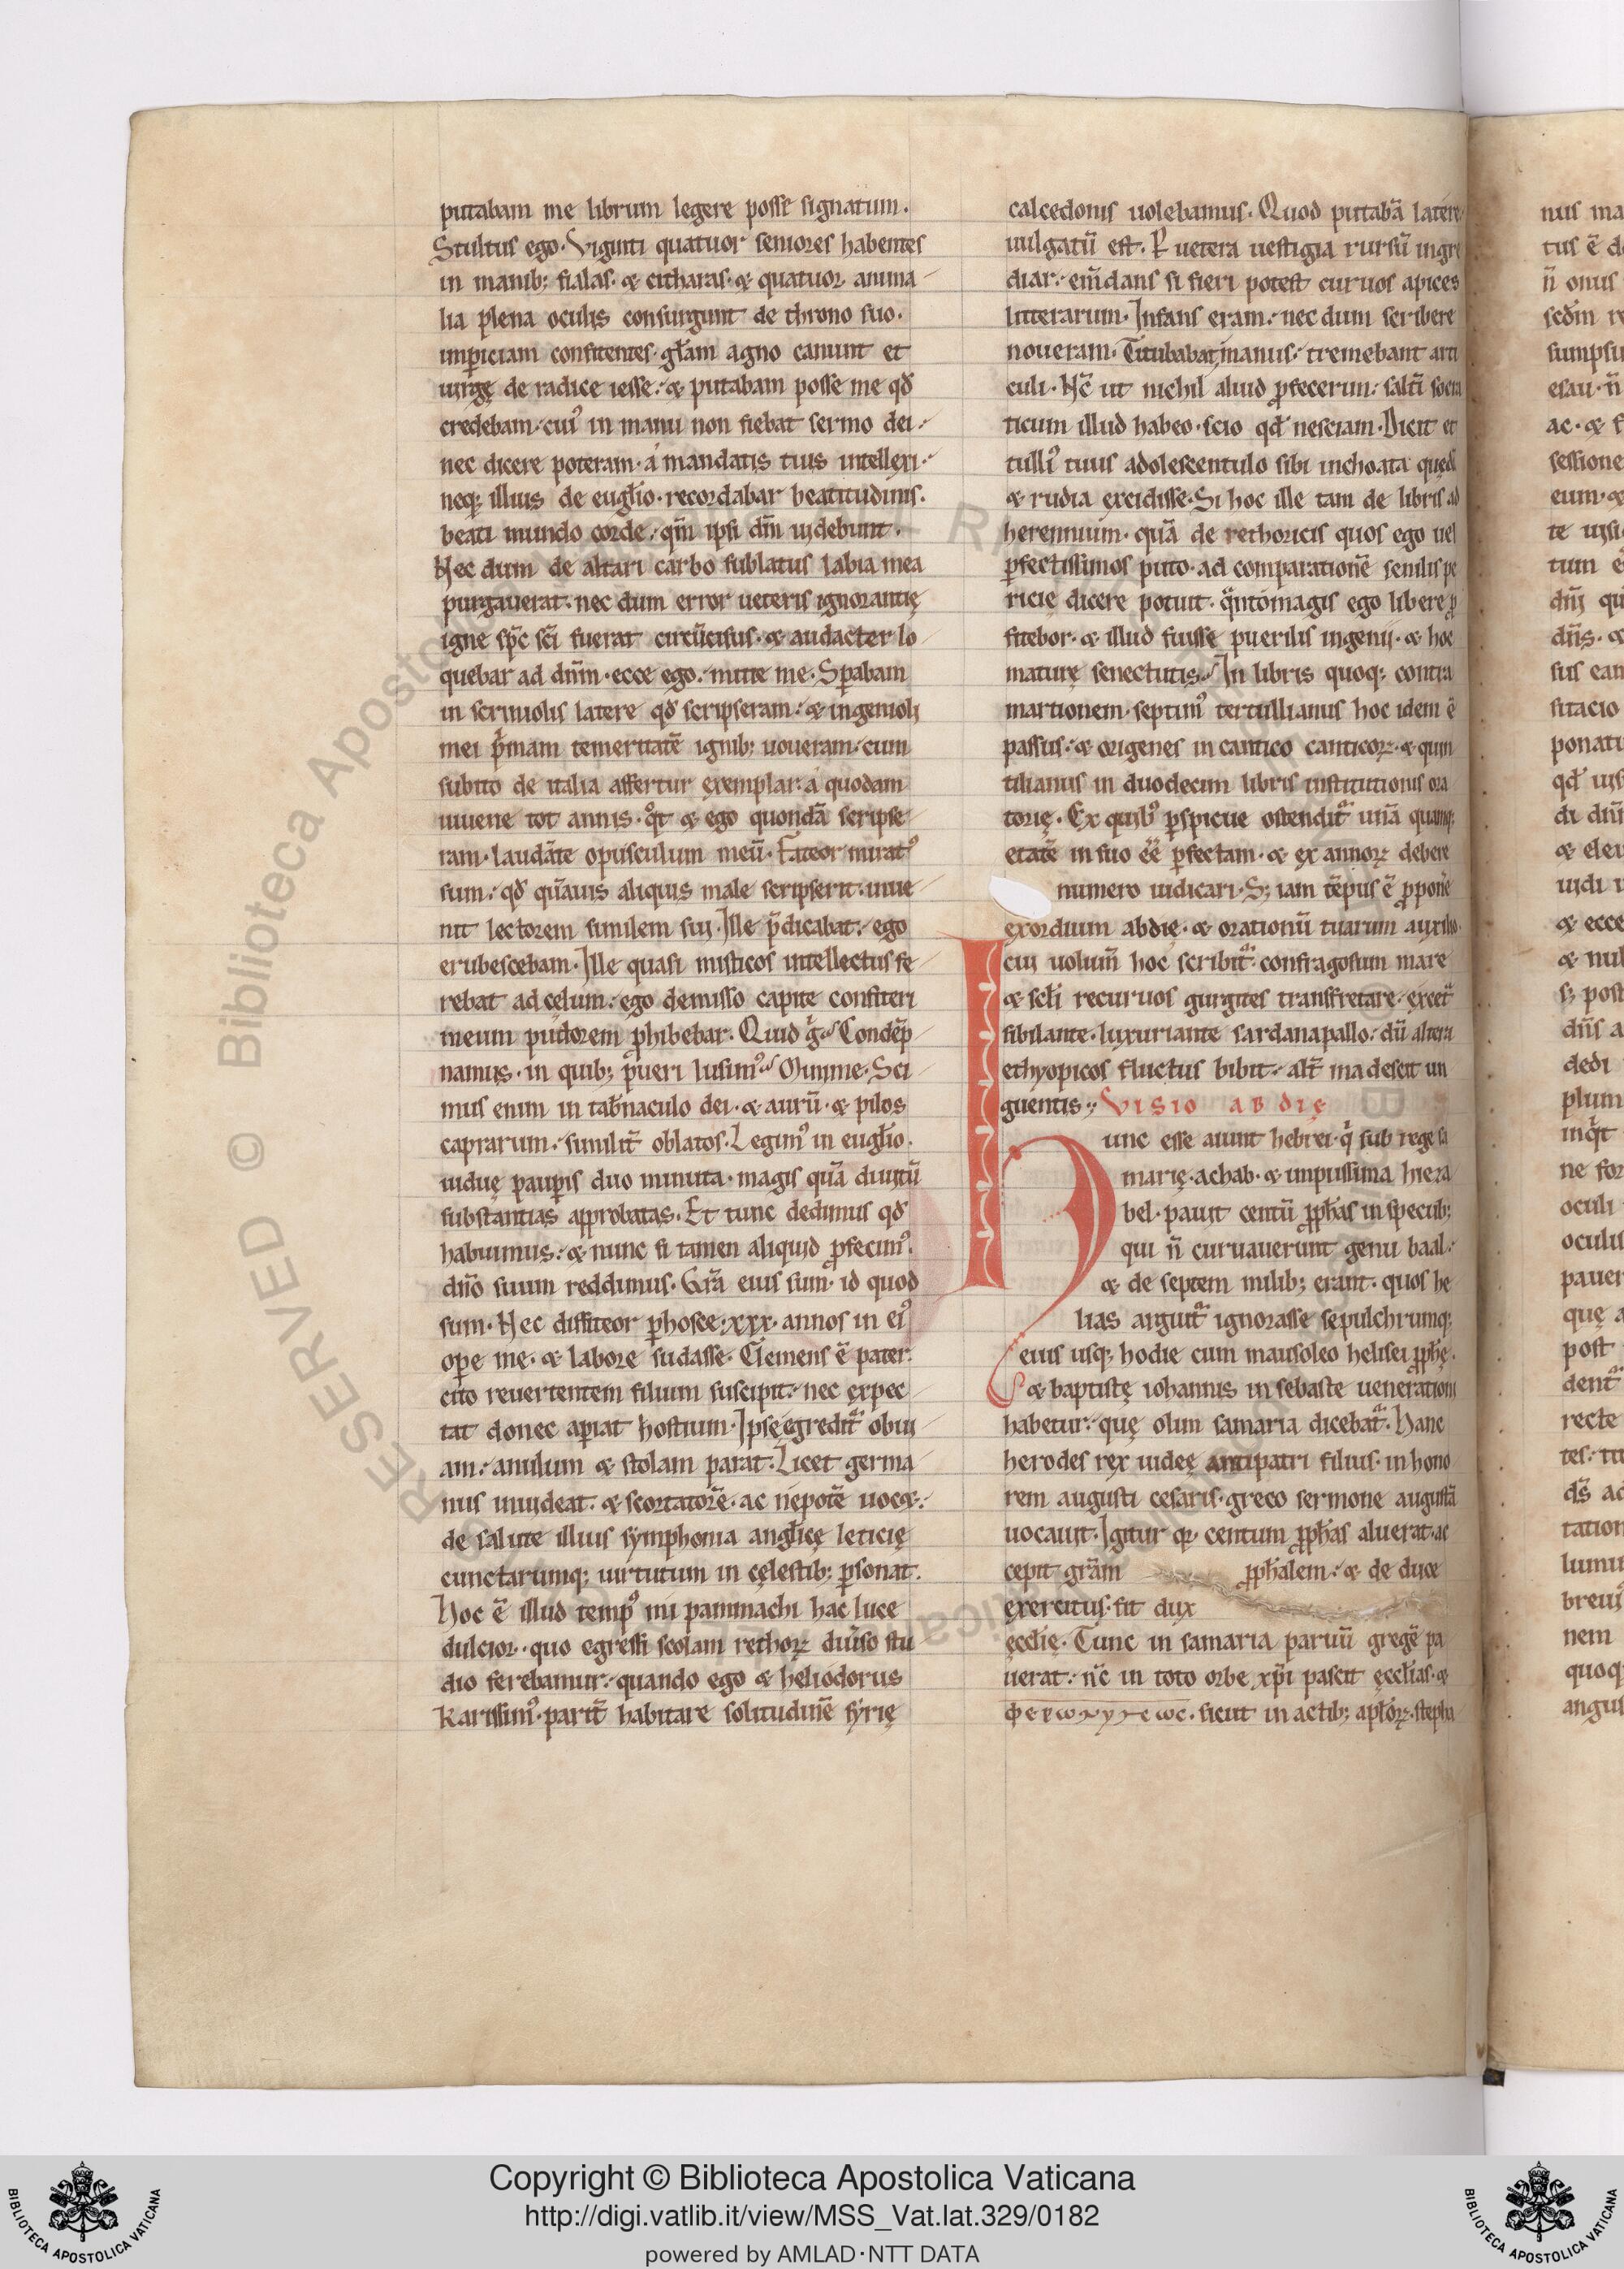 putabam me librum legere posse signatum.
Stultus ego. Viginti quatuor seniores habentes
in manib; fialas. & citharas. & quatuor anima
lia plena oculis consurgunt de throno suo.
imꝑiciam confitentes. gl̃am agno canunt et
uirgę de radice iesse. & putabam posse me qđ
credebam. cuiꝰ in manu non fiebat sermo dei.
nec dicere poteram. a mandatis tuis intellexi.
neq; illius de eugl̃io. recordabar beatitudinis.
beati mundo corde. qm̃ ipsi dm̃ uidebunt.
Nec dum de altari carbo sublatus labia mea
purgauerat. nec dum error ueteris ignorantię
igne sp̃c sc̃i fuerat circũcisus. & audacter lo
quebar ad dnm̃. ecce ego. mitte me. Sꝑabam
in scriniolis latere qđ scripseram. & ingenioli
mei p̃mam temeritatẽ ignib; uoueram. cum
subito de italia affertur exemplar. a quodam
iuuene tot annis. qͦt & ego quondã scripse
ram. laudãte opusculum meũ. Fateor miratꝰ
sum. qđ quãuis aliquis male scripserit. inue
nit lectorem similem sui. Ille p̃dicabat. ego
erubescebam. Ille quasi misticos intellectus fe
rebat ad cęlum. ego demisso capite confiteri
meum pudorem ꝓhibebar. Quid g̃. Condẽp
namus. in quib; pueri lusimꝰ. Minime. Sci
mus enim in tab̃naculo dei. & aurũ. & pilos
caprarum. similit̃ oblatos. Legimꝰ in eugl̃io.
uiduę pauꝑis duo minuta. magis quã diuitũ
substantias approbatas. Et tunc dedimus qđ
habuimus. & nunc si tamen aliquid ꝓfecimꝰ.
dño suum reddimus. Gr̃a eius sum. id quod
sum. Nec diffiteor ꝑ hosce. xxx. annos in eiꝰ
oꝑe me. & labore sudasse. Clemens ẽ pater.
cito reuertentem filium suscipit. nec expec
tat donec aꝑiat hostium. Ipse egredit̃ obui
am. anulum & stolam parat. Licet germa
nus inuideat. & scortatorẽ. ac nepotẽ uocet.
de salute illius symphonia angl̃icę leticię
cunctarumq; uirtutum in cęlestib; ꝑsonat.
Hoc ẽ illud tempꝰ mi pammachi hac luce
dulcior. quo egressi scolam rethoꝝ diuiso stu
dio ferebamur. quando ego & heliodorus
Karissimꝰ. parit̃ habitare solitudinẽ syrię
calcedonis uolebamus. Quod putabã latere.
uulgatũ est. P uetera uestigia rursũ ingre
diar. em̃dans si fieri potest curuos apices
litterarum. Infans eram. nec dum scribere
noueram. Titubabat manus. tremebant arti
culi. Nc̃ ut nichil aliud ꝓfecerim. salt̃ socra
ticum illud habeo. scio qđ nesciam. Dicit et
tulliꝰ tuus adolescentulo sibi inchoata quędã
& rudia excidisse. Si hoc ille tam de libris ad
herennium. quã de rethoricis quos ego uel
ꝑfectissimos puto. ad comparationẽ senilis pe
ricię dicere potuit. q̃nto magis ego libere ꝓ
fitebor. & illud fuisse puerilis ingenij. & hoc
maturę senectutis. In libris quoq; contra
martionem. septimꝰ tertullianus hoc idem ẽ
passus. & origenes in cantico canticoꝝ. & quin
tilianus in duodecim libris institutionis ora
torię. Ex quibꝰ ꝑspicue ostendit̃ unã quamq;
etatẽ in suo eẽ ꝑfectam. & ex annoꝝ debere
numero iudicari. S; iam tẽpus ẽ ꝓpone
exordium abdię. & orationũ tuarum auxilio.
cui uolum̃ hoc scribit̃. confragosum mare
& scl̃i recuruos gurgites transfretare. excet̃
sibilante. luxuriante sardanapallo. dũ altera
ethyopicos fluctus bibit. alt̃ madescit un
guentis. Visio abdię
Hunc esse aiunt hebrei. q̃ sub rege sa
marię. achab. & impiissima hieza
bel. pauit centũ ꝓph̃as in specub;
qui ñ curuauerunt genu baal.
& de septem milib; erant. quos he
lias arguit̃ ignorasse sepulchrumq;
eius usq; hodie cum mausoleo helisei ꝓph̃ę.
& baptistę iohannis in sebaste uenerationi
habetur. quę olim samaria dicebat̃. Hanc
herodes rex iudeę antipatri filius. in hono
rem augusti cesaris. greco sermone augustã
uocauit. Igitur qꝛ centum ꝓph̃as aluerat. ac
cepit gr̃am ꝓph̃alem. & de duce
exercitus. fit dux
ęcclię. Tunc in samaria paruũ gregẽ pa
uerat. nc̃ in toto orbe xp̃i pascit ęccl̃ias. &
. sicut in actib; apl̃oꝝ. stepha
Copyright © Biblioteca Apostolica Vaticana
http://digi.vatlib.it/view/MSS_Vat.lat.329/0182
powered by AMLAD·NTT DATA